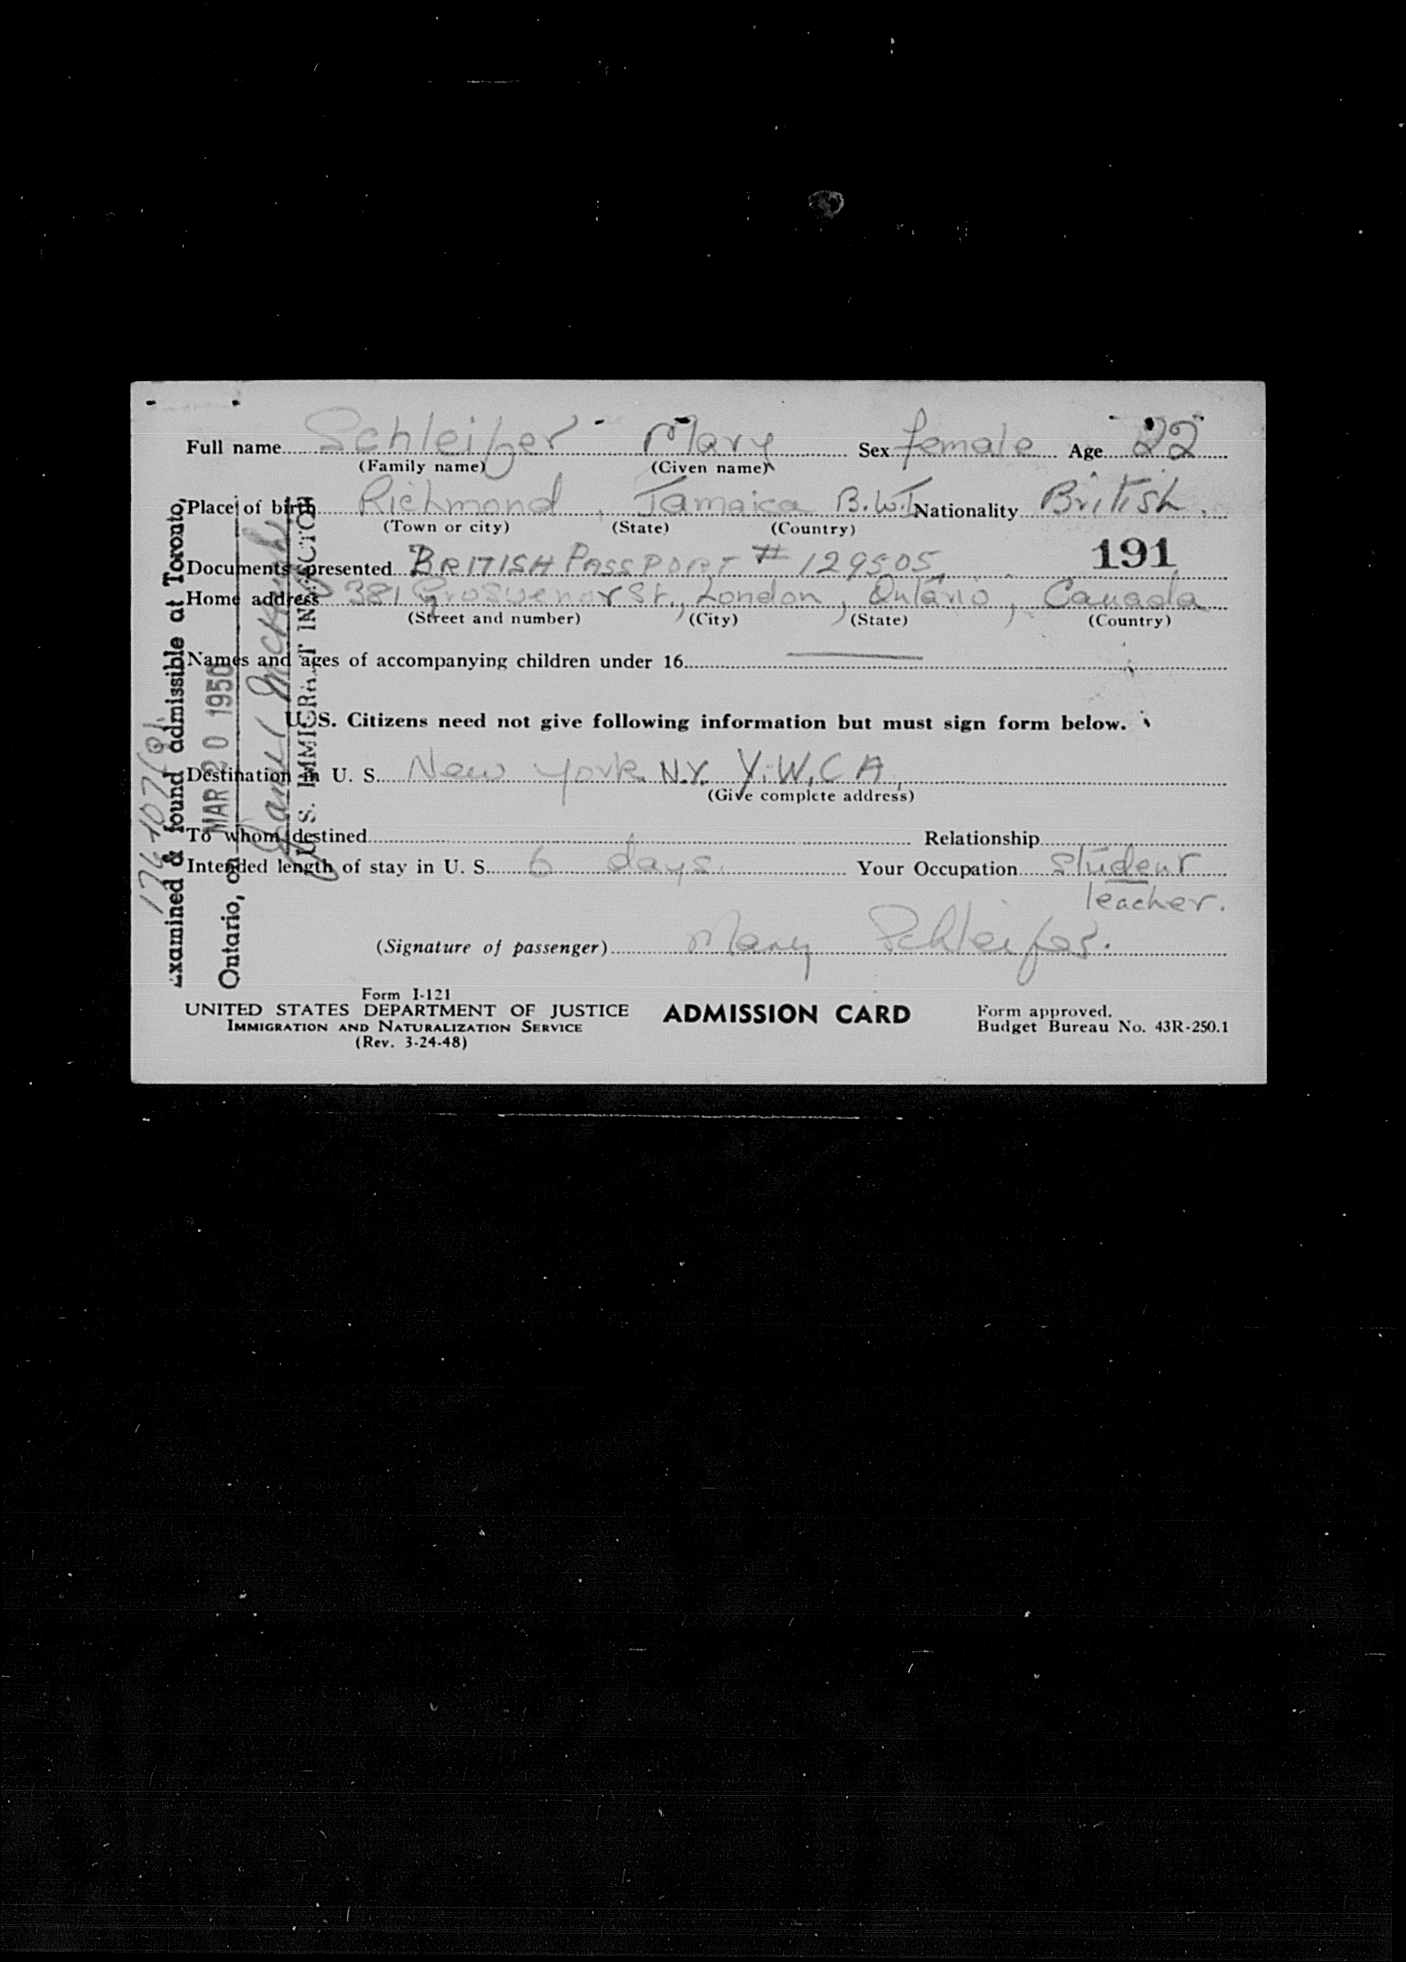 Full name Schleifer Mary Sex female Age 22
(Family name) (Given name)
Place of birth Richmond, Jamaica B.W.I. Nationality British.
(Town or city) (State) (Country)
191
Documents presented BRITISH PASSPORT # 129505
Home address 381 Grosvenor St., London, Ontario, Canada
(Street and number) (City) (State) (Country)
Names and ages of accompanying children under 16
U. S. Citizens need not give following information but must sign form below.
Destination in U. S. New York N.Y. Y.W.C.A.
(Give complete address)
To whom destined Relationship
Intended length of stay in U. S. 6 days. Your Occupation student
teacher.
(Signature of passenger) Mary Schleifer.
Form I-121
UNITED STATES DEPARTMENT OF JUSTICE ADMISSION CARD Form approved.
IMMIGRATION AND NATURALIZATION SERVICE Budget Bureau No. 43R-250.1
(Rev. 3-24-48)
Examined & found admissible at Toronto,
MAR 20 1950
Ontario, on
U. S. IMMIGRANT INSPECTOR